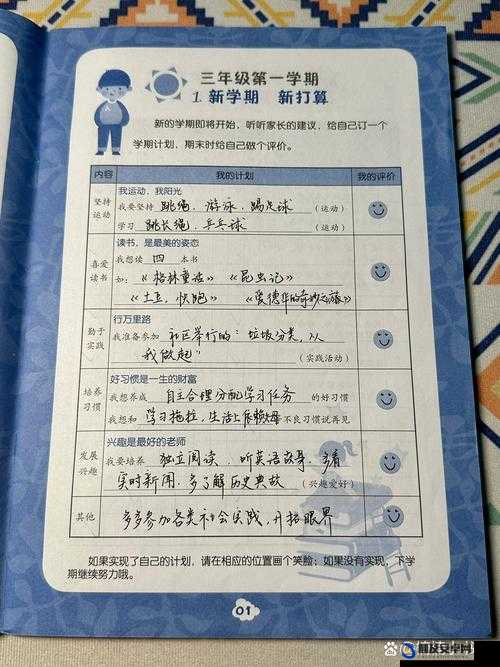 三年级第一学期
1. 新学期 新打算
新的学期即将开始，听听家长的建议，给自己订一个
学期计划，期末时给自己做个评价。
内容 我的计划 我的评价
坚持运动
我运动，我阳光
我要坚持 跳绳、游泳、踢足球 （运动）
学习 跳长绳、乒乓球 （运动）
喜爱读书
读书，是最美的姿态
我想读 四 本书
如：《格林童话》 《昆虫记》
《土豆，快跑》 《爱德华的奇妙之旅》
勤于实践
行万里路
我准备参加 社区举行的“垃圾分类，从
我做起” （实践活动）
培养习惯
好习惯是一生的财富
我想养成 自主合理分配学习任务 的好习惯
我想和 学习拖拉，生活上依赖父母 不良习惯说再见
发展兴趣
兴趣是最好的老师
我要培养 独立阅读，听英语故事，多看
实时新闻，多了解历史典故 （兴趣爱好）
其他 多多参加各类社会实践，开拓眼界
如果实现了自己的计划，请在相应的位置画个笑脸；如果没有实现，下学
期继续努力哦。
01
触及安卓网